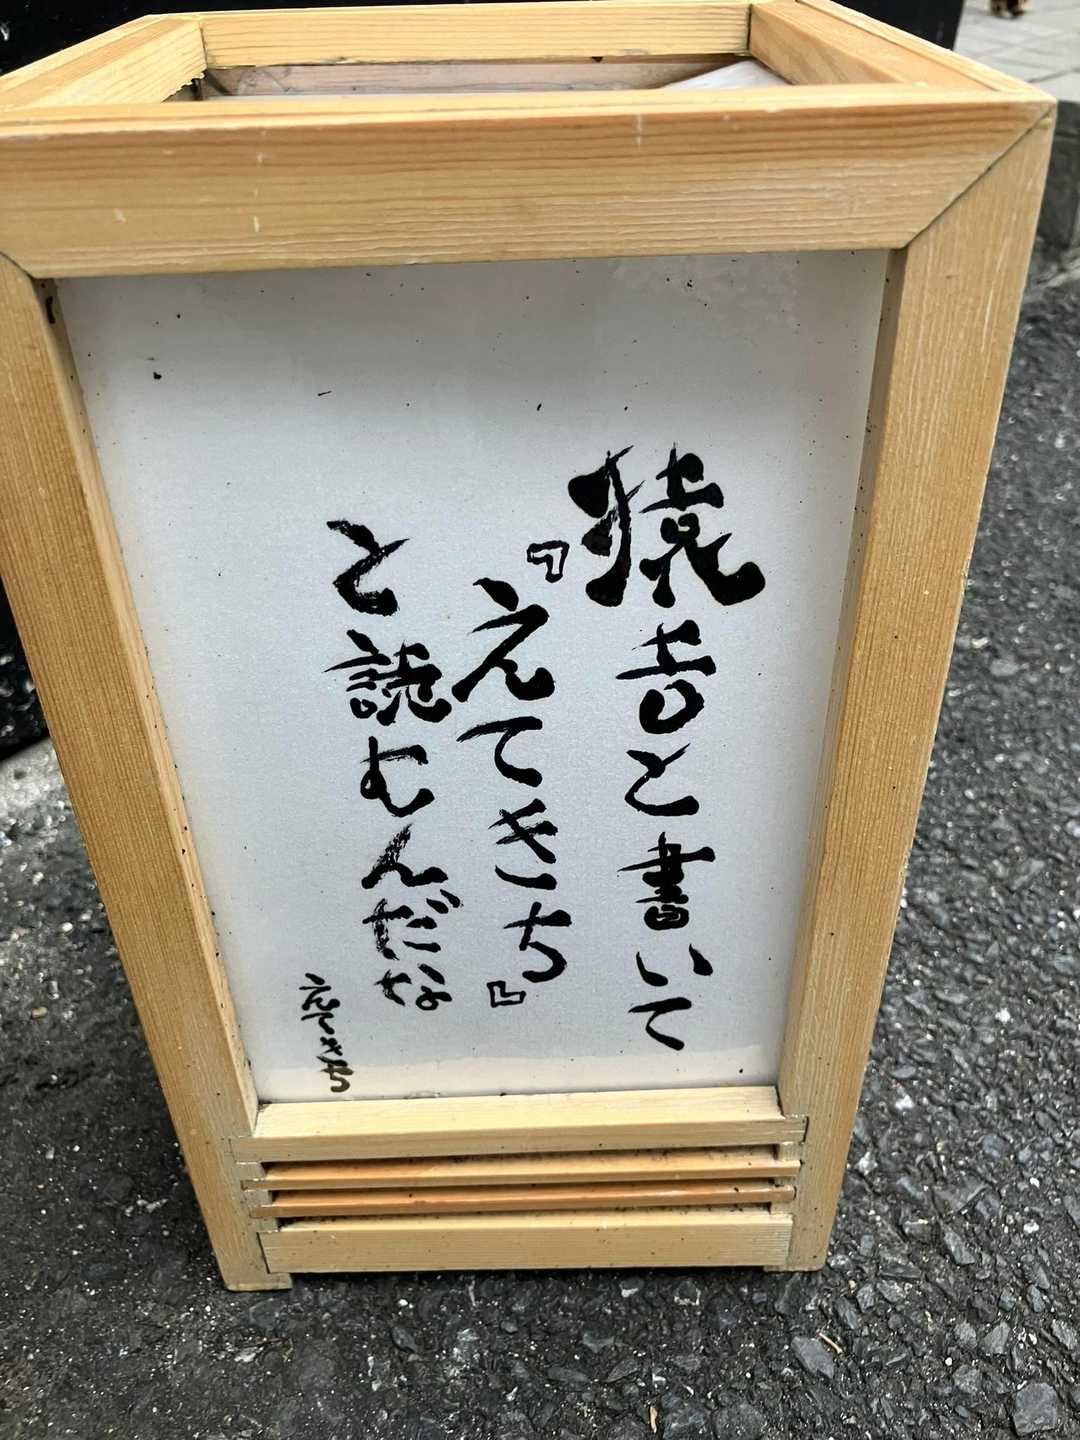 猿吉と書いて
『えてきち』
と読むんだな
えてきち